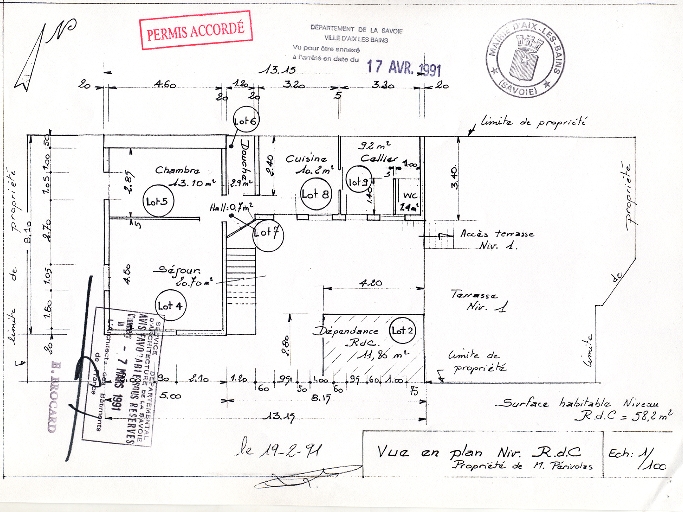 N
PERMIS ACCORDÉ
DÉPARTEMENT DE LA SAVOIE
VILLE D'AIX LES BAINS
Vu pour être annexé
à l'arrêté en date du
17 AVR. 1991
MAIRIE D'AIX-LES-BAINS
(SAVOIE)
13.15
20 4.60 1.20 3.20 3.20 20
20 20 5
Lot 6
limite de propriété
Chambre
13.10 m²
Lot 5
Douche
2.9 m²
2.40
Cuisine
10.2 m²
Lot 8
9.2 m²
Cellier
1.00
Lot 9
1.40
WC
1.4 m²
3.40
propriété
Hall: 0.7 m²
Lot 7
Accès terrasse
Niv. 1.
limite de propriété
8.10
50
1.00
1.05
2.70
1.05
1.60
20
2.85
5
4.50
Séjour
20.70 m²
Lot 4
4.20
Terrasse
Niv. 1
de
limite
2.80
Dépendance
R.d.C.
11,80 m²
Lot 2
limite de
propriété
SERVICE DÉPARTEMENTAL
D'ARCHITECTURE DE LA SAVOIE
AVIS FAVORABLE SOUS RÉSERVES
- 7 MARS 1991
L'Architecte des Bâtiments
de France
B. BROCARD
90 2.10 1.20 60 95 50 1.00 60 95 60 1.00
5.00 8.15
13.15
Surface habitable Niveau
R.d.C = 58,2 m²
le 19-2-91
Vue en plan Niv. R.d.C
Propriété de M. Périvolas
Ech: 1/100